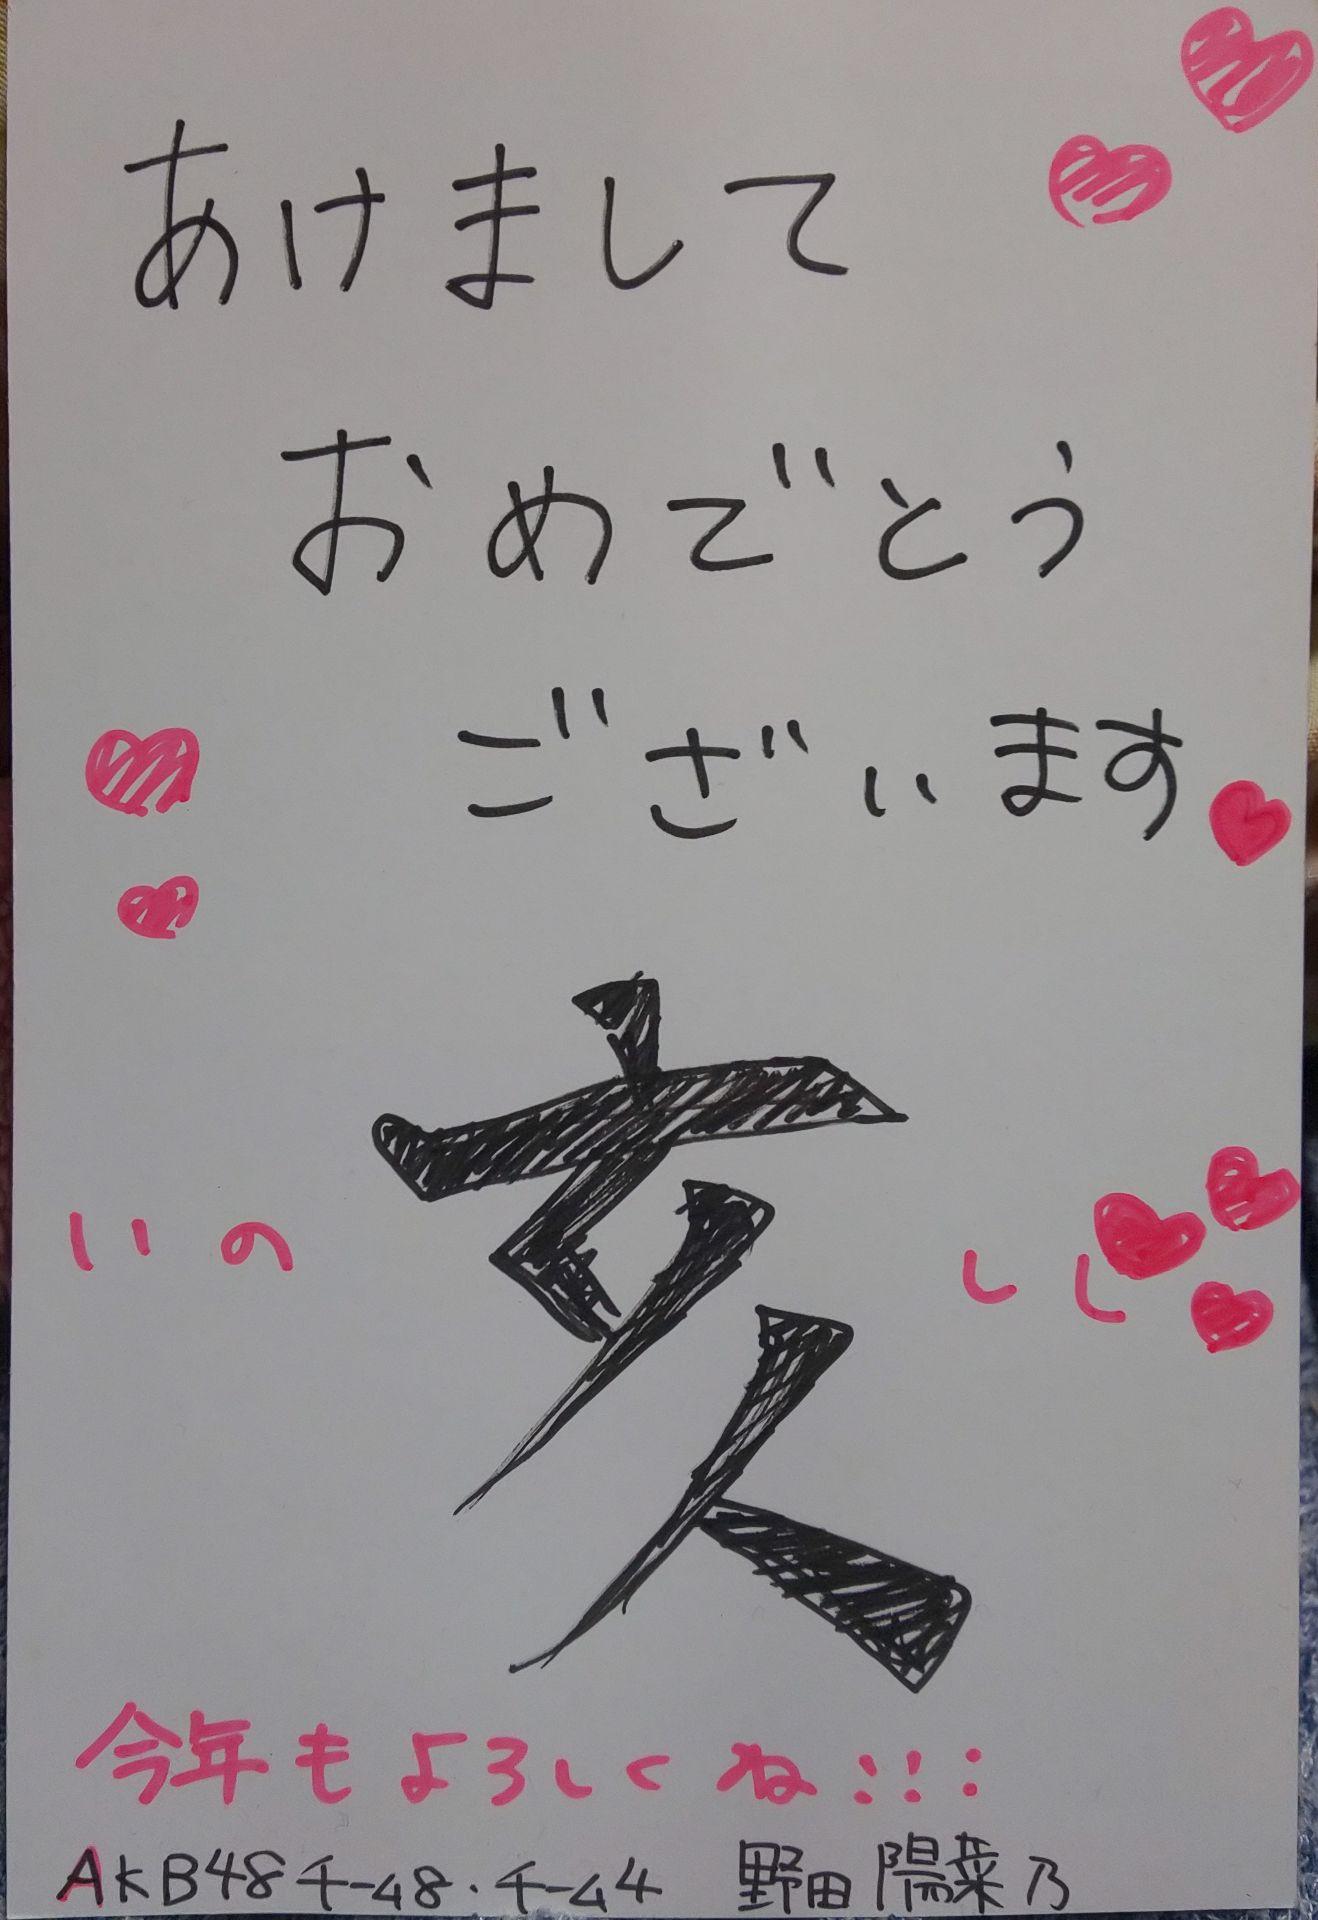 あけまして
おめでとう
ございます
亥
いの しし
今年もよろしくね!!!
AKB48チーム8・チーム4 野田陽菜乃